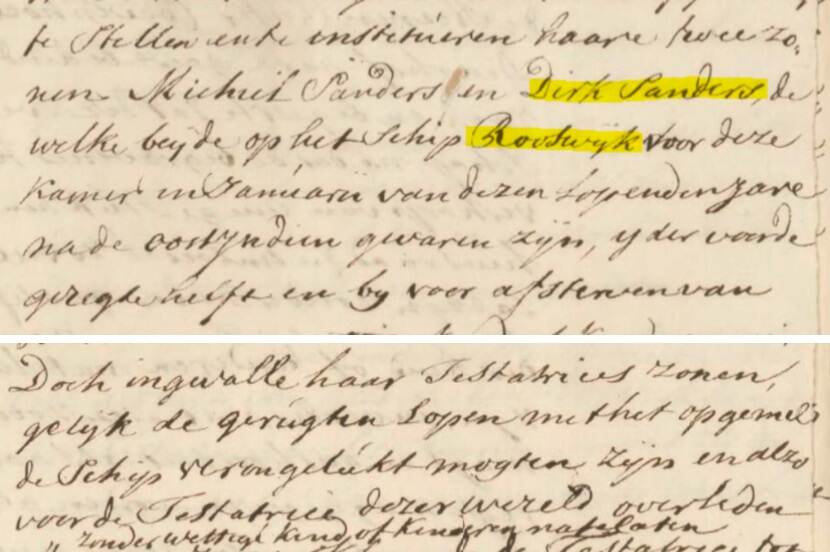 te Stellen ente institueren haare twee zo-
nen Michiel Sanders en Dirk Sanders, de
welke beyde op het Schip Rooswijk voor deze
Kamer in Januarii van dezen Lopenden Jare
na de oostyndien gevaren zijn, yder voor de
gezegde helft en by voor afsterven van
Doch ingevalle haar Testatrices zonen,
gelyk de gerugten Lopen met het opgemel-
de Schip verongelukt mogten zijn en alzo
voor de Testatrice dezer wereld overleden
zonder wettige Kind of Kinderen natelaten
de Testatrice